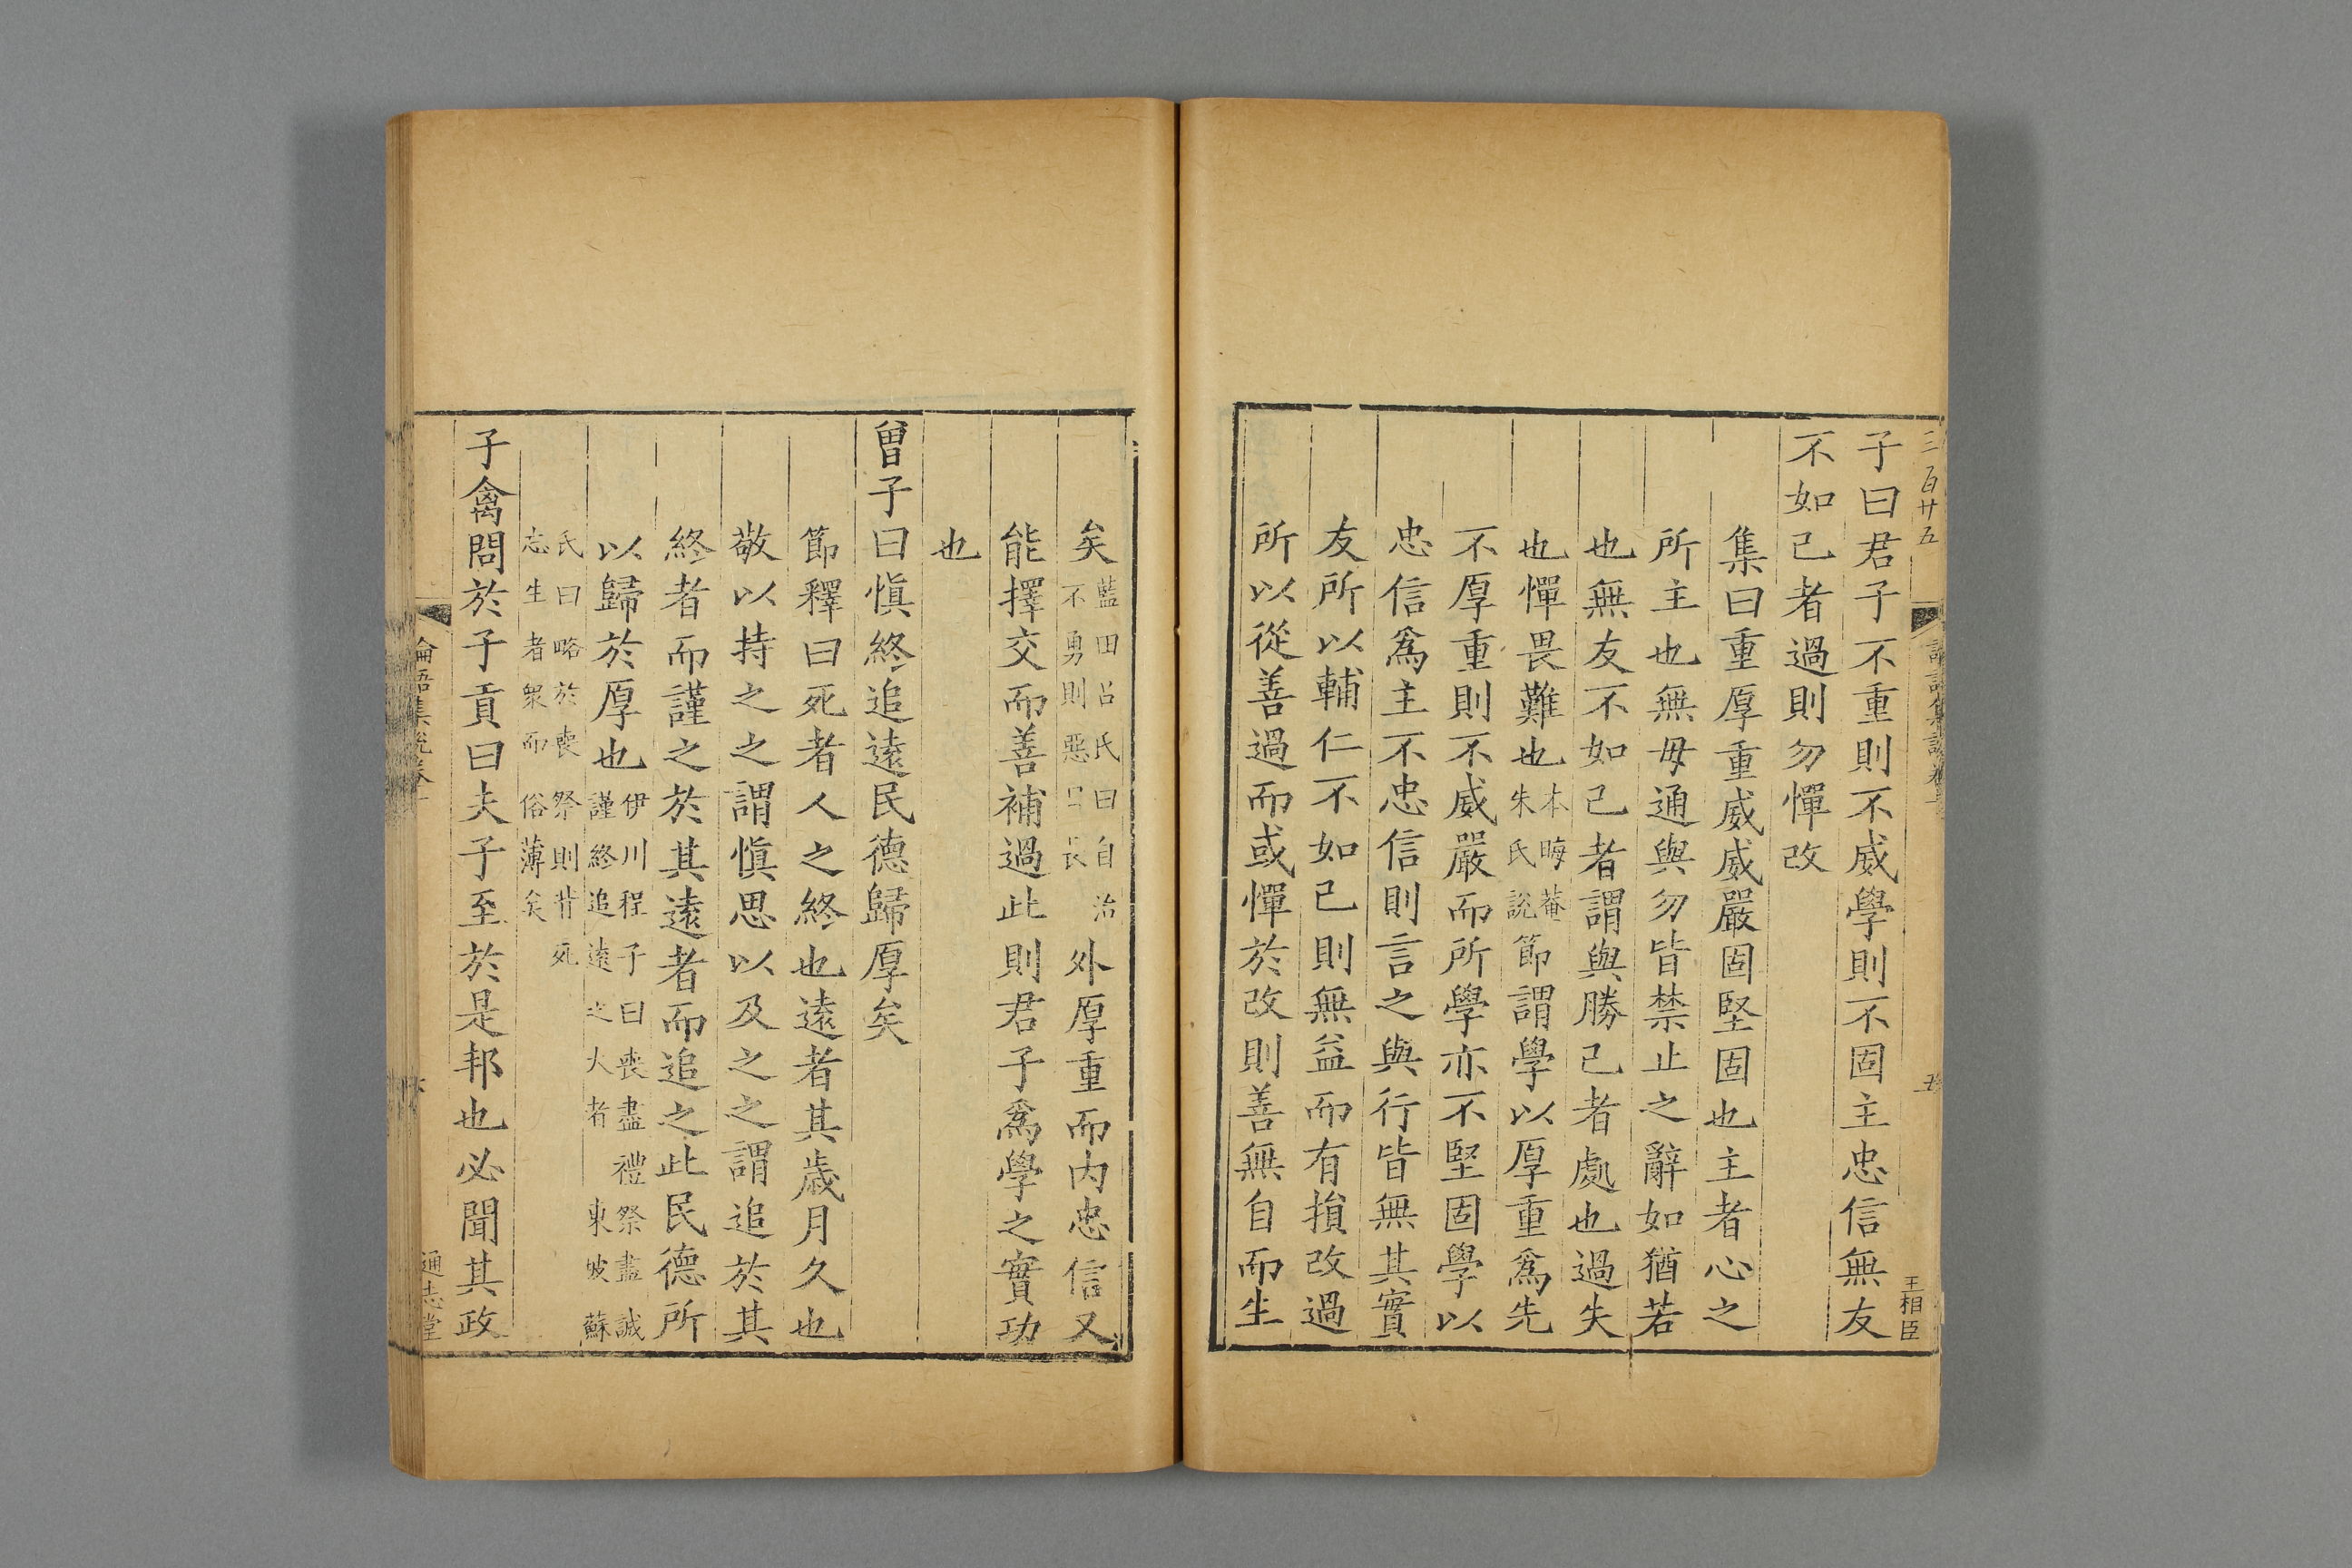 三百廿五
五
王相臣
子曰君子不重則不威學則不固主忠信無友
不如己者過則勿憚改
集曰重厚重威威嚴固堅固也主者心之
所主也無毋通與勿皆禁止之辭如猶若
也無友不如己者謂與勝己者處也過失
也憚畏難也
本晦菴
朱氏說
節謂學以厚重爲先
不厚重則不威嚴而所學亦不堅固學以
忠信爲主不忠信則言之與行皆無其實
友所以輔仁不如己則無益而有損改過
所以從善過而或憚於改則善無自而生
矣
藍田呂氏曰自治
不勇則惡日長
外厚重而內忠信又
能擇交而善補過此則君子爲學之實功
也
曾子曰愼終追遠民德歸厚矣
節釋曰死者人之終也遠者其歲月久也
敬以持之之謂愼思以及之之謂追於其
終者而謹之於其遠者而追之此民德所
以歸於厚也
伊川程子曰喪盡禮祭盡誠
謹終追遠之大者
東坡蘇
氏曰略於喪祭則背死
忘生者衆而俗薄矣
子禽問於子貢曰夫子至於是邦也必聞其政
論語集說卷一
通志堂